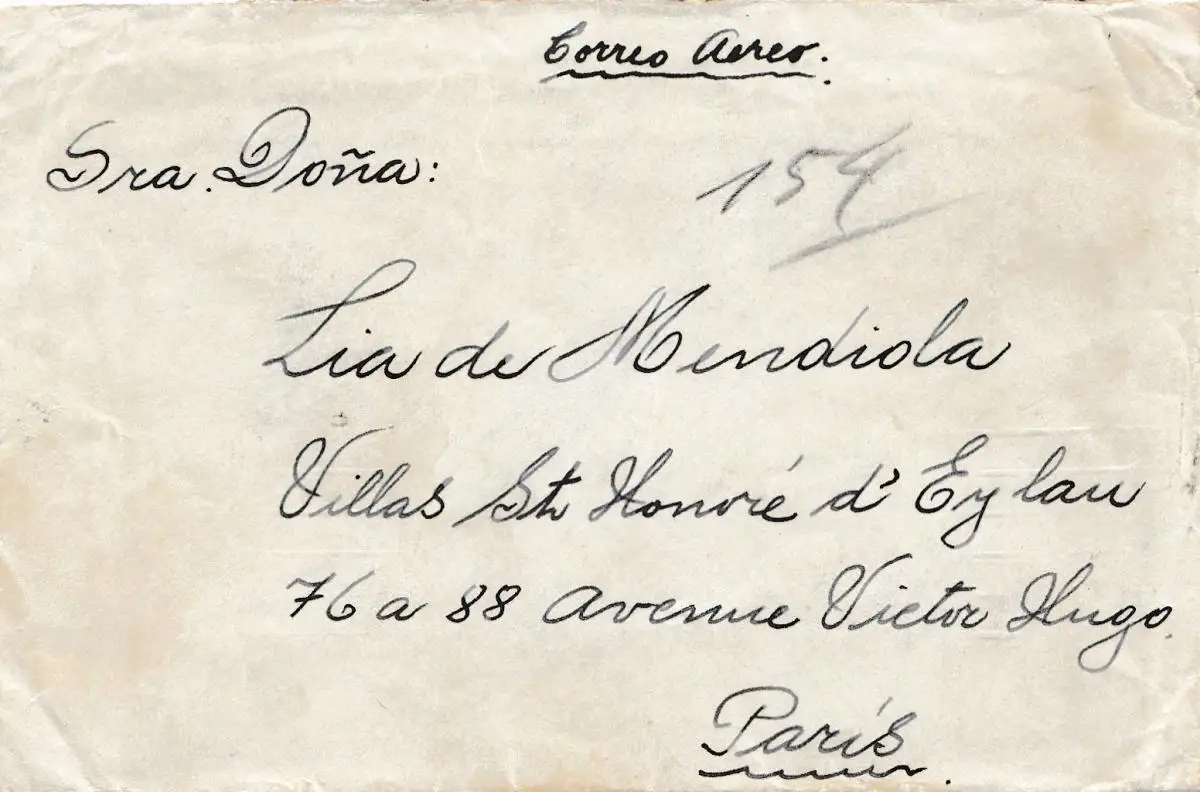 Correo Aereo.
Sra. Doña:
154
Lia de Mendiola
Villas St Honoré d'Eylau
76 a 88 Avenue Victor Hugo.
París.